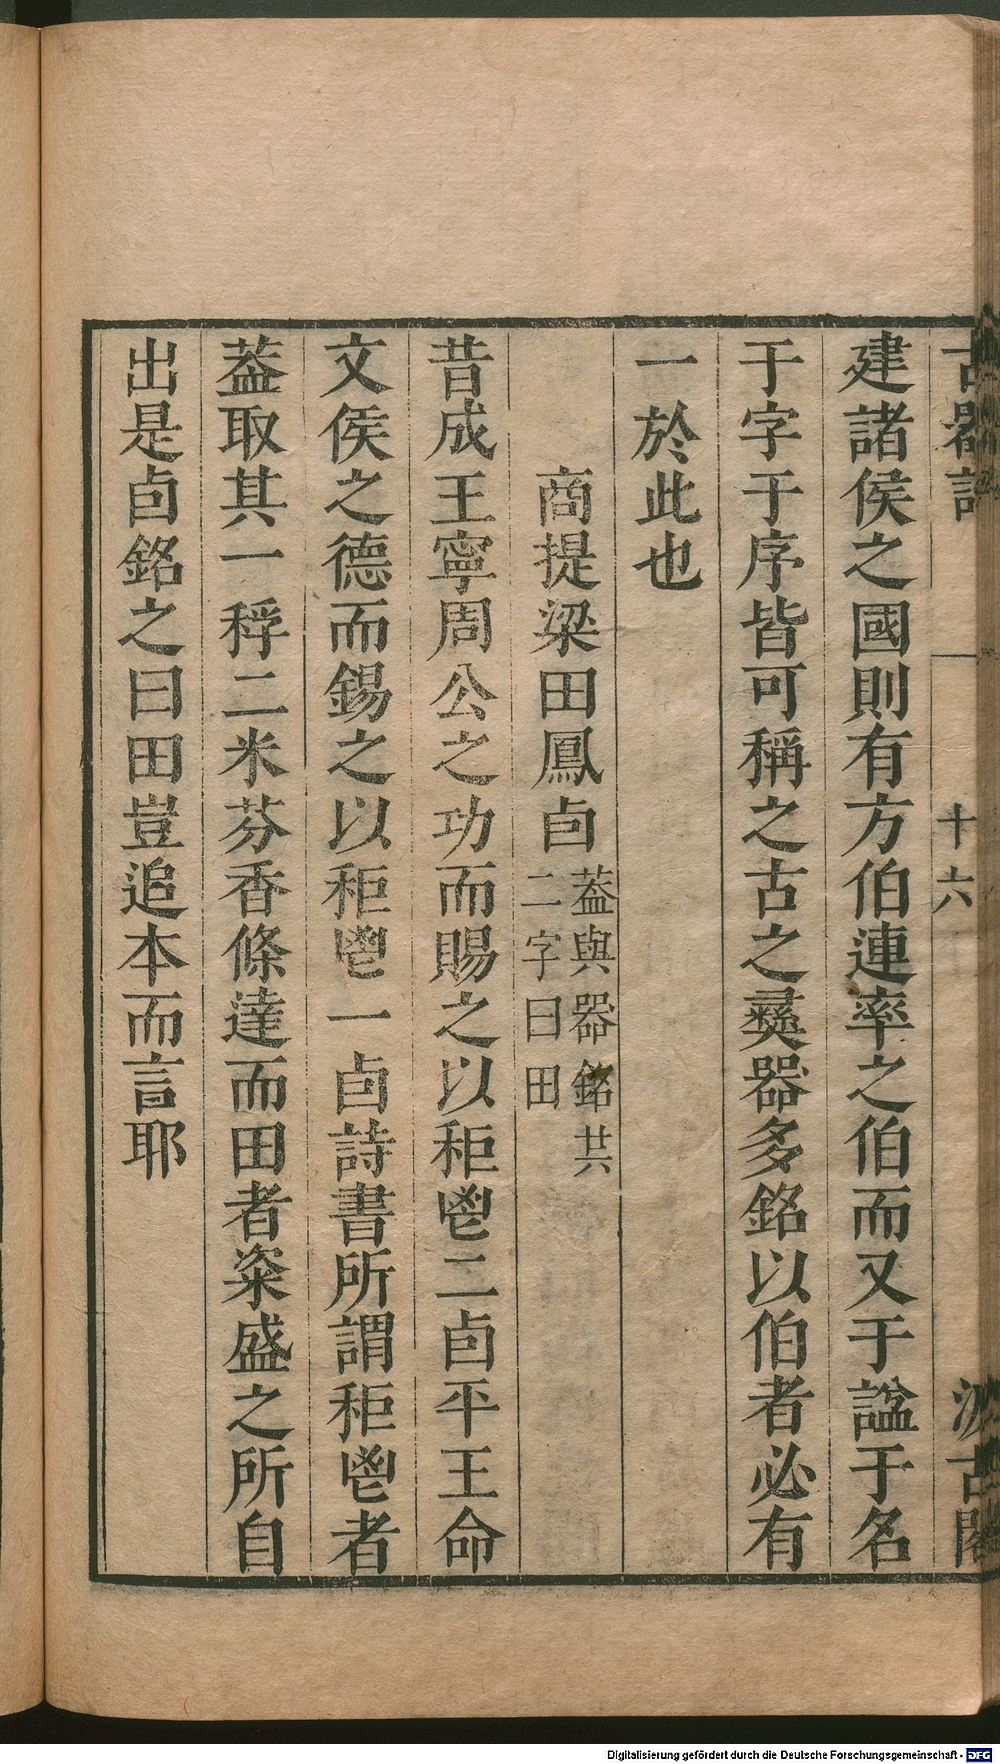 建諸侯之國則有方伯連率之伯而又于諡于名
于字于序皆可稱之古之彞器多銘以伯者必有
一於此也
商提梁田鳳卣
葢與器銘共
二字曰田
昔成王寧周公之功而賜之以秬鬯二卣平王命
文侯之德而錫之以秬鬯一卣詩書所謂秬鬯者
葢取其一稃二米芬香條達而田者粢盛之所自
出是卣銘之曰田豈追本而言耶
十六
汲古閣
Digitalisierung gefördert durch die Deutsche Forschungsgemeinschaft - DFG